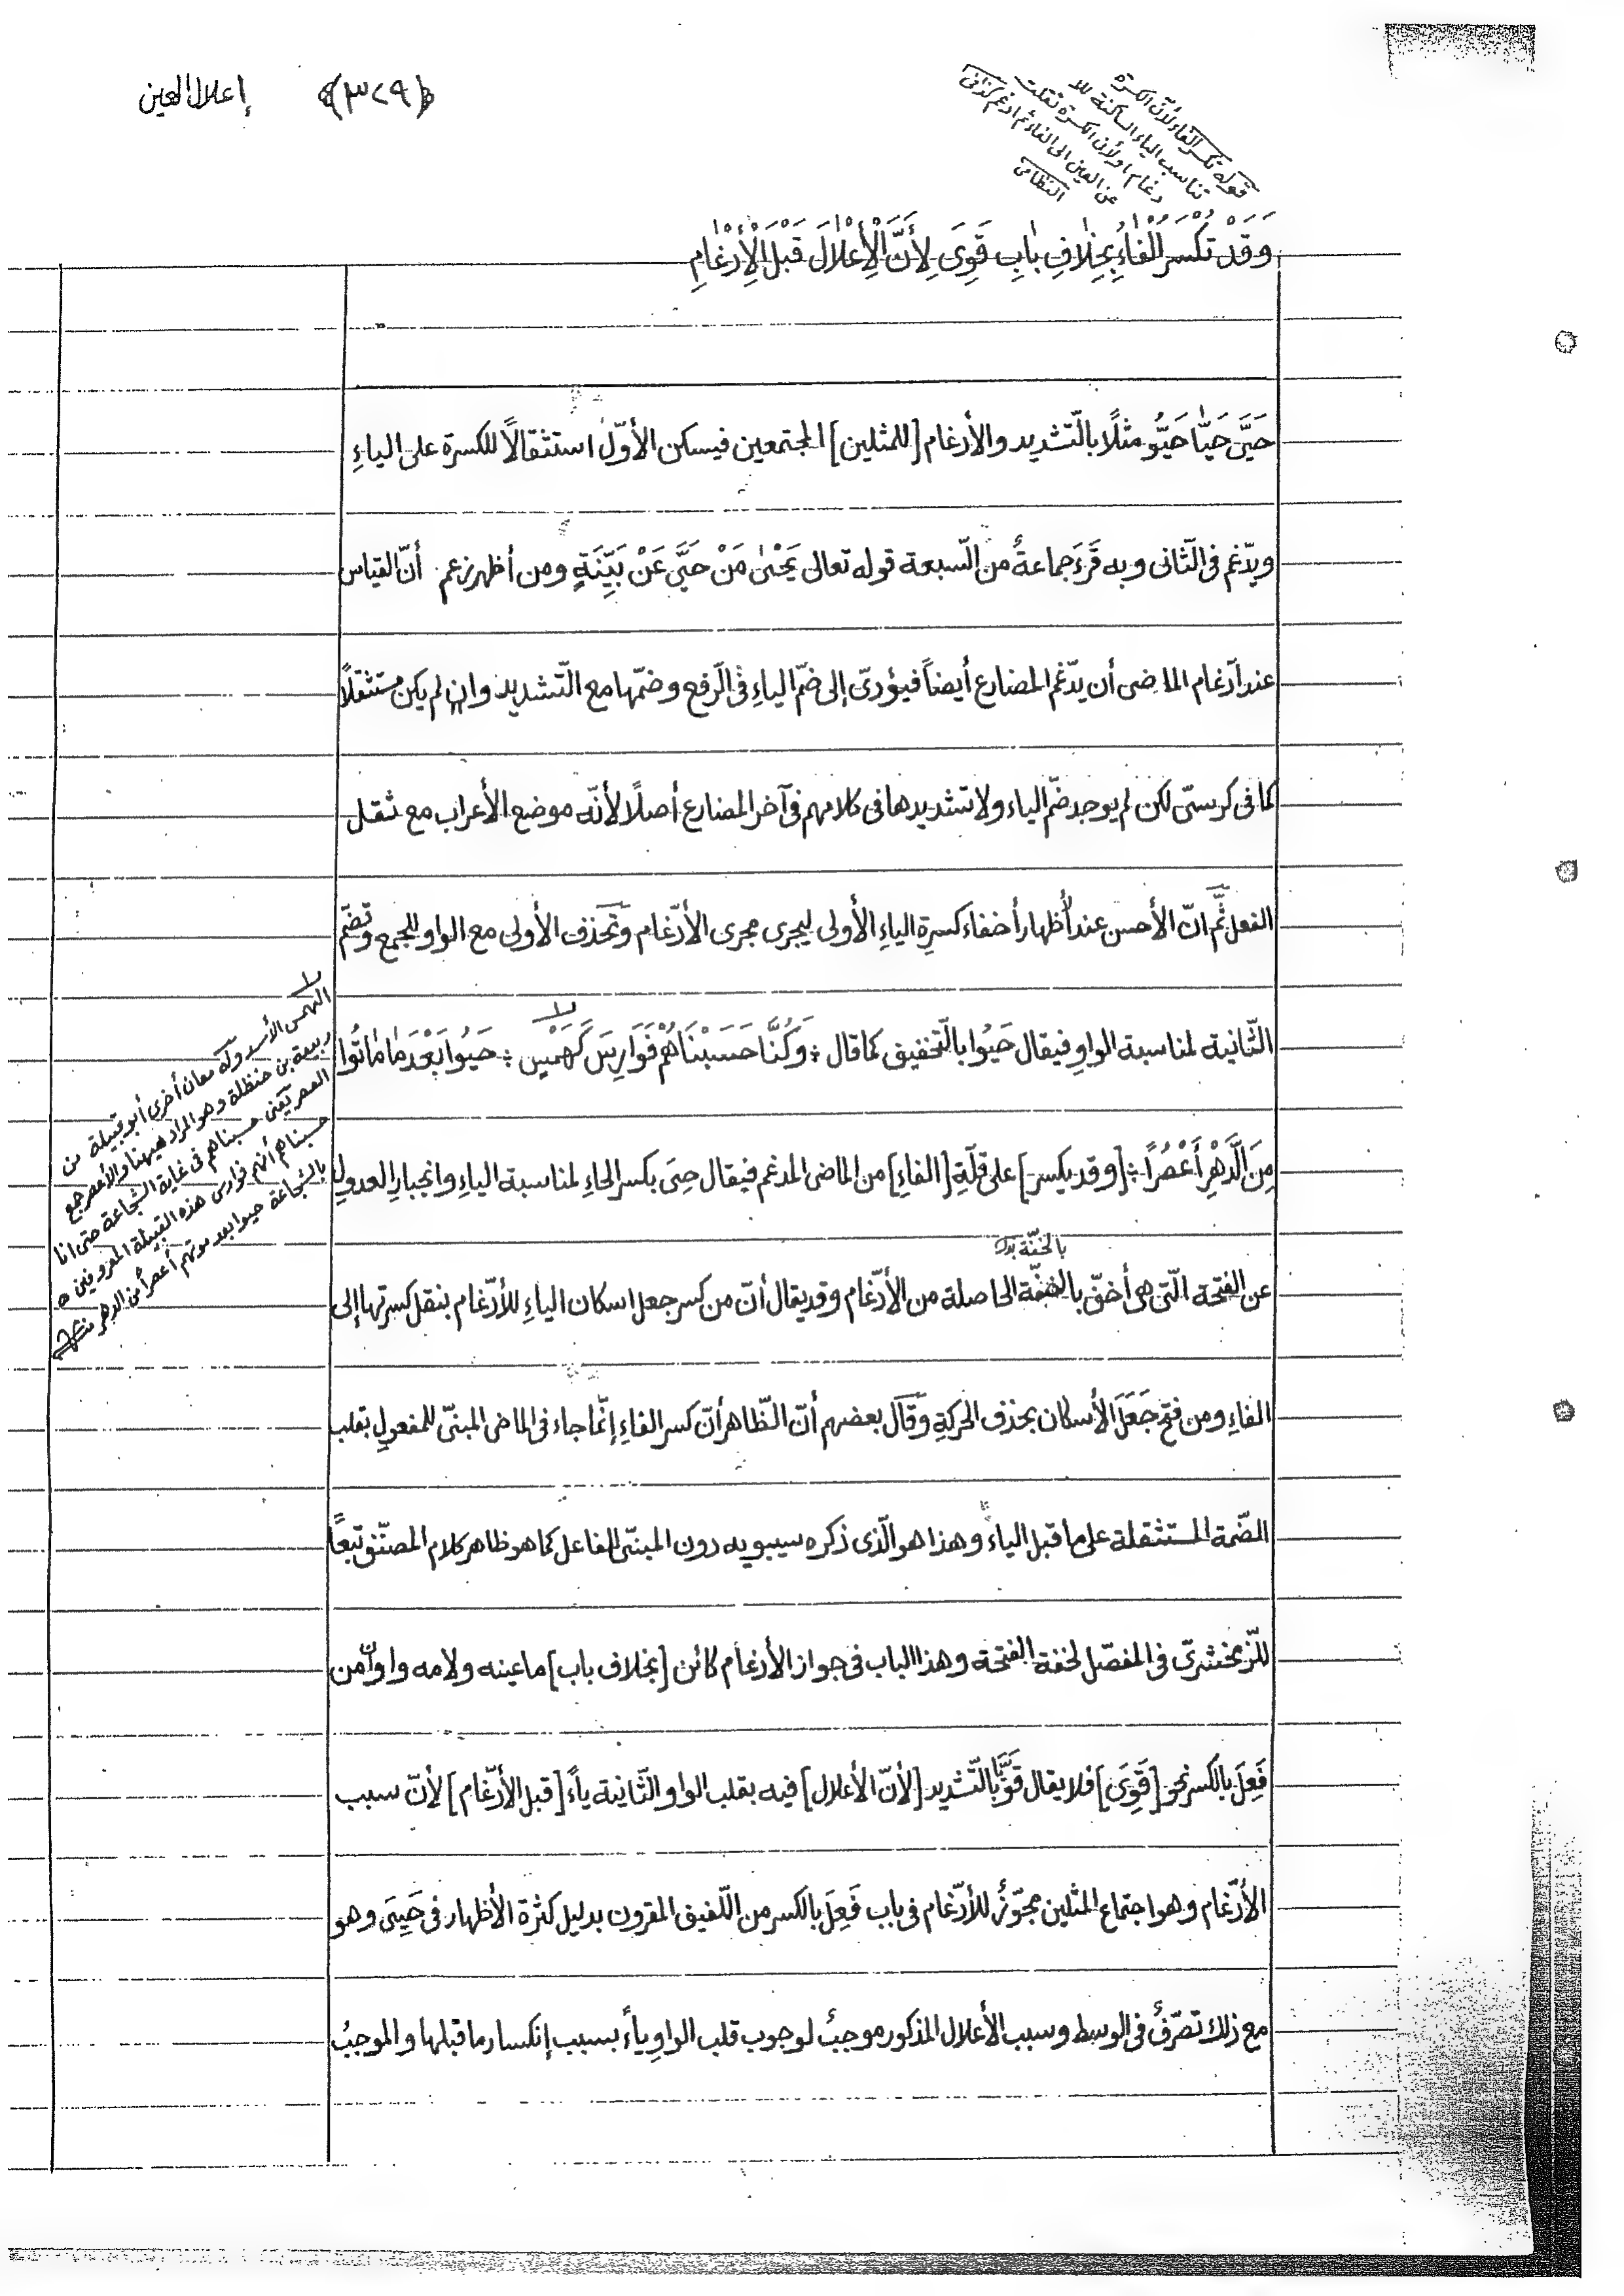 إعلال العين
﴿٣٢٩﴾
قوله تكسر الفاء لأنّ الكسرة
تناسب الياء الساكنة للا
دغام أو لأن الكسرة نقلت
عن العين الى الفاء ثم ادغم
النظامى
وَقَدْ تُكْسَرُ الْفٰاءُ بِخِلٰافِ بٰابِ قَوِىَ لِأَنَّ الْأِعْلٰالَ قَبْلَ الْأِدْغٰامِ
حَىَّ حَيّٰا حَيُّو مثلًا بالتّشديد والأدغام [للمثلين] المجتمعين فيسكن الأوّل استثقالًا للكسرة على الياءِ
ويدّغم فى الثّانى وبه قَرَءَ جماعةٌ من السّبعة قوله تعالى يَحْيٰى مَنْ حَىَّ عَنْ بَيِّنَةٍ ومن أظهر زعم أنّ القياس
عند ادّغام الماضى أن يدّغم المضارع أيضاً فيؤدىّ إلى ضمّ الياءِ فى الرّفع وضمّها مع التّشديد وان لم يكن مستثقلًا
كما فى كرسىّ لكن لم يوجد ضمّ الياء ولا تشديدها فى كلامهم فى آخر المضارع أصلًا لأنّه موضع الأعراب مع ثقل
الفعل ثُمَّ انّ الأحسن عند الأظهار أخفاء كسرة الياءِ الأولى ليجرى مجرى الأدّغام وتحذف الأولى مع الواو للجمع وتضمّ
الثّانية لمناسبة الواوِ فيقال حَيُوا بالتّخفيق كما قال ؛ وَكُنّٰا حَسَبْنٰاهُمْ فَوٰارِسَ كَهْمَسٍ ؛ حَيُوا بَعْدَ مٰا مٰاتُوا
مِنَ الدَّهْرِ أَعْصُرًا ؛ [وقد يكسر] على قلّةٍ [الفاءِ] من الماضى المدغم فيقال حِىَ بكسر الحاءِ لمناسبة الياءِ وانجبارِ العدولِ
بالخفّة بدل
عن الفتحة الّتى هى أخفّ بالخفّة الحاصلة من الأدّغام وقد يقال أنّ من كسر جعل اسكان الياءِ للأدّغام بنقل كسرتها إلى
الفاءِ ومن فتح جَعَلَ الأسكان بحذف الحركةِ وقال بعضهم أنّ الظّاهر أنّ كسر الفاءِ إنّما جاء فى الماضى المبنىّ للمفعولِ بقلب
الضّمة المستثقلة على ما قبل الياءِ وهذا هو الّذى ذكره سيبويه دون المبنىّ للفاعل كما هو ظاهر كلام المصنّف تبعًا
للزّمخشرىّ فى المفصّل لخفة الفتحة وهذا الباب فى جواز الأدغام كائن [بخلاف باب] ما عينه ولامه واوان من
فَعِلَ بالكسر نحو [قَوِىَ] فلا يقال قَوَّ بالتّشديد [لأنّ الأعلال] فيه بقلب الواو الثّانية ياءً [قبل الأدّغام] لأنّ سبب
الأدّغام وهو اجتماع المثلين مجوّزٌ للأدّغام فى باب فَعِلَ بالكسر من اللّفيق المقرون بدليل كثرة الأظهار فى حَيِىَ وهو
مع ذلك تصرّفٌ فى الوسط وسبب الأعلال المذكور موجبٌ لوجوب قلب الواوِ ياءً بسبب إنكسار ما قبلها والموجبُ
الكهمس الأسد وله معان أخرى أبو قبيلة من
ربيعة بن حنظلة وهو المراد هيهنا والأعصر جمع
العصر يعنى حسبناهم فى غاية الشّجاعة حتى انا
حسبناهم أنهم فوارس هذه القبيلة المعروفين
بالشجاعة حيوا بعد موتهم أعصرًا من الدهر